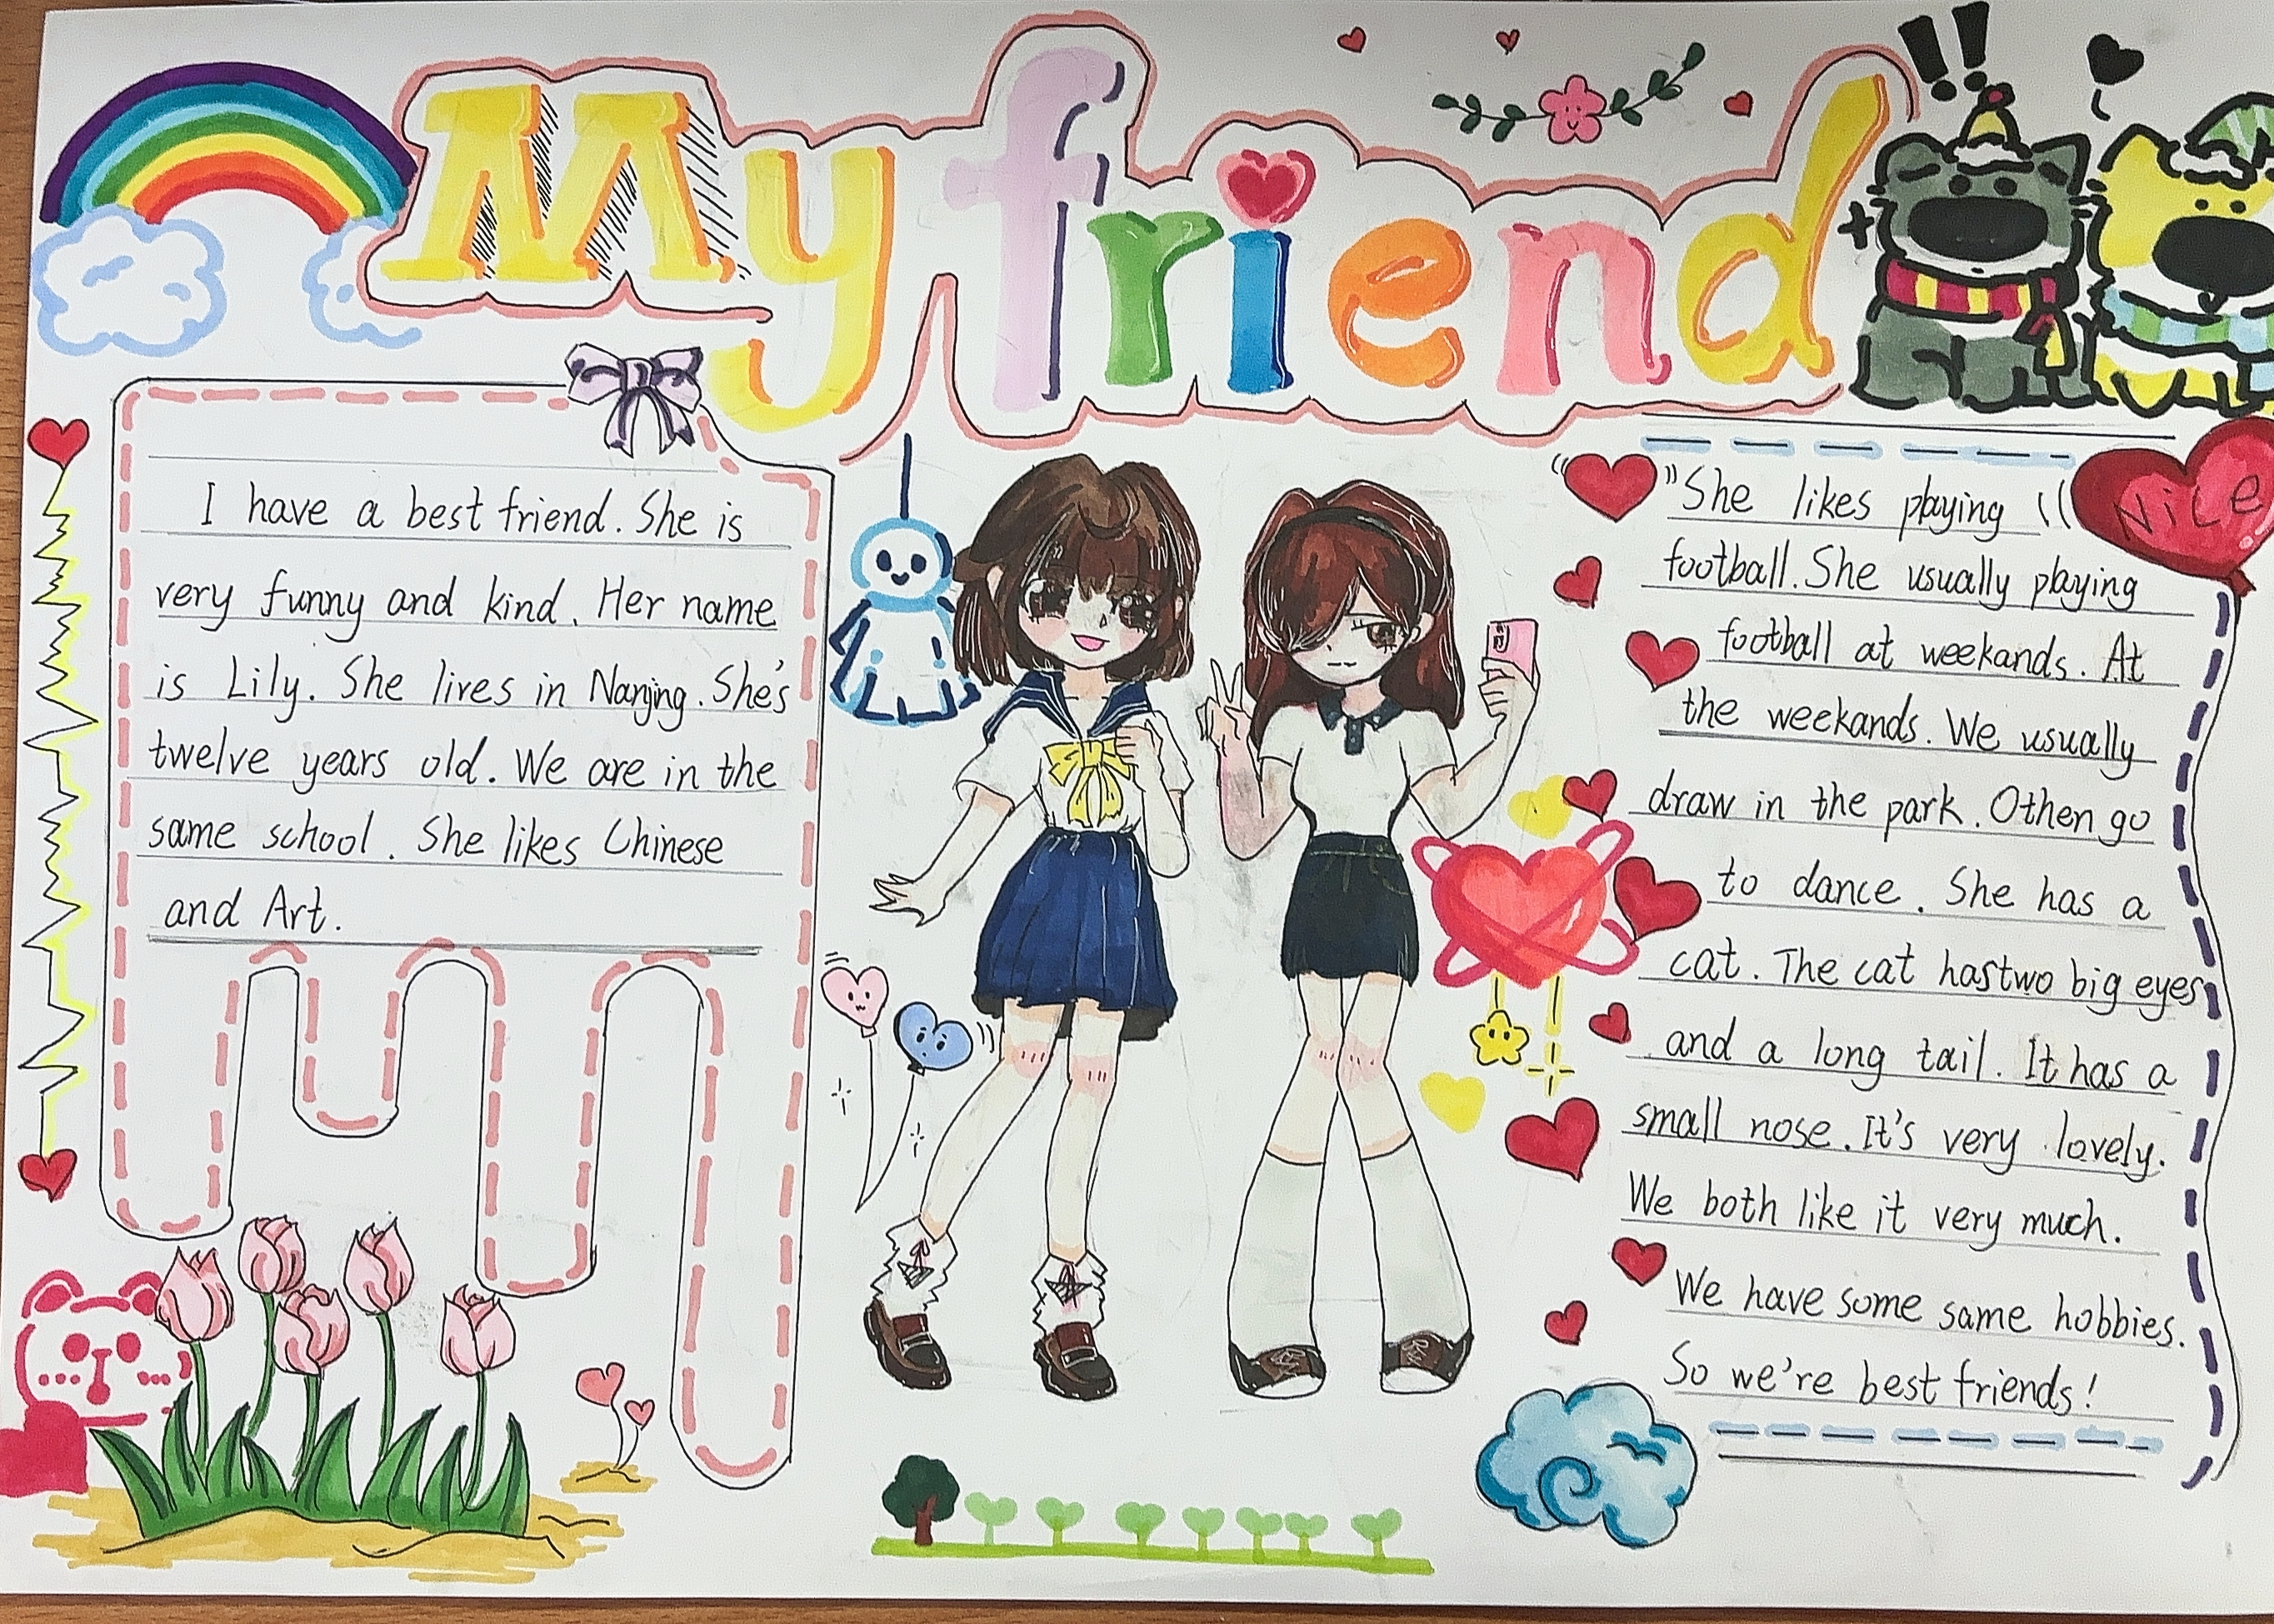 My friend
I have a best friend. She is
very funny and kind. Her name
is Lily. She lives in Nanjing. She's
twelve years old. We are in the
same school. She likes Chinese
and Art.
She likes playing
Nice
football. She usually playing
football at weekands. At
the weekands. We usually
draw in the park. Othen go
to dance. She has a
cat. The cat has two big eyes
and a long tail. It has a
small nose. It's very lovely.
We both like it very much.
We have some same hobbies.
So we're best friends!